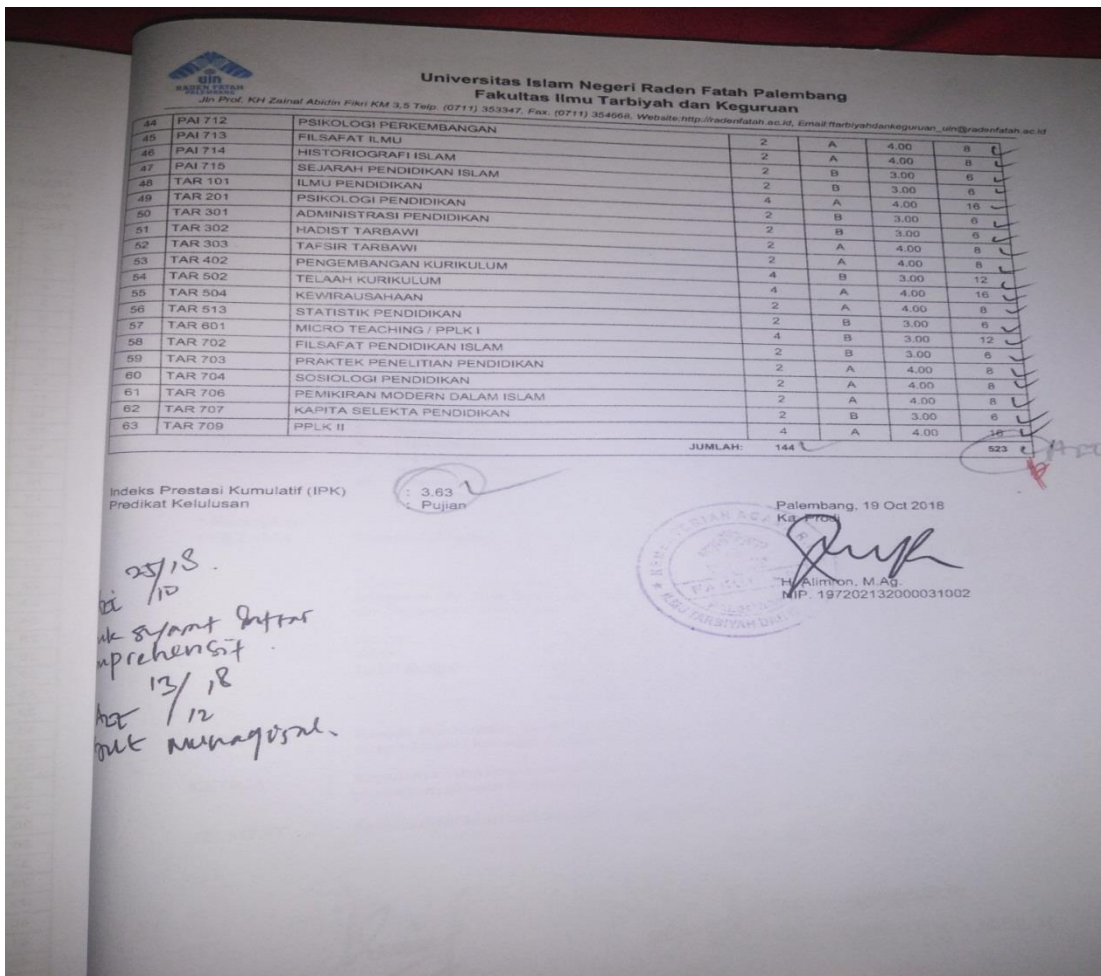 uin
RADEN FATAH
PALEMBANG
Universitas Islam Negeri Raden Fatah Palembang
Fakultas Ilmu Tarbiyah dan Keguruan
Jln Prof. KH Zainal Abidin Fikri KM 3,5 Telp. (0711) 353347, Fax. (0711) 354668, Website:http://radenfatah.ac.id, Email:ftarbiyahdankeguruan_uin@radenfatah.ac.id
44 PAI 712 PSIKOLOGI PERKEMBANGAN 2 A 4.00 8
45 PAI 713 FILSAFAT ILMU 2 A 4.00 8
46 PAI 714 HISTORIOGRAFI ISLAM 2 B 3.00 6
47 PAI 715 SEJARAH PENDIDIKAN ISLAM 2 B 3.00 6
48 TAR 101 ILMU PENDIDIKAN 4 A 4.00 16
49 TAR 201 PSIKOLOGI PENDIDIKAN 2 B 3.00 6
50 TAR 301 ADMINISTRASI PENDIDIKAN 2 B 3.00 6
51 TAR 302 HADIST TARBAWI 2 A 4.00 8
52 TAR 303 TAFSIR TARBAWI 2 A 4.00 8
53 TAR 402 PENGEMBANGAN KURIKULUM 4 B 3.00 12
54 TAR 502 TELAAH KURIKULUM 4 A 4.00 16
55 TAR 504 KEWIRAUSAHAAN 2 A 4.00 8
56 TAR 513 STATISTIK PENDIDIKAN 2 B 3.00 6
57 TAR 601 MICRO TEACHING / PPLK I 4 B 3.00 12
58 TAR 702 FILSAFAT PENDIDIKAN ISLAM 2 B 3.00 6
59 TAR 703 PRAKTEK PENELITIAN PENDIDIKAN 2 A 4.00 8
60 TAR 704 SOSIOLOGI PENDIDIKAN 2 A 4.00 8
61 TAR 706 PEMIKIRAN MODERN DALAM ISLAM 2 A 4.00 8
62 TAR 707 KAPITA SELEKTA PENDIDIKAN 2 B 3.00 6
63 TAR 709 PPLK II 4 A 4.00 16
JUMLAH: 144 523
Indeks Prestasi Kumulatif (IPK) : 3.63
Predikat Kelulusan : Pujian
Palembang, 19 Oct 2018
Ka. Prodi
H. Alimron, M.Ag.
NIP. 197202132000031002
25/18
/10
syarat
mprehensif
13/ 18
/12